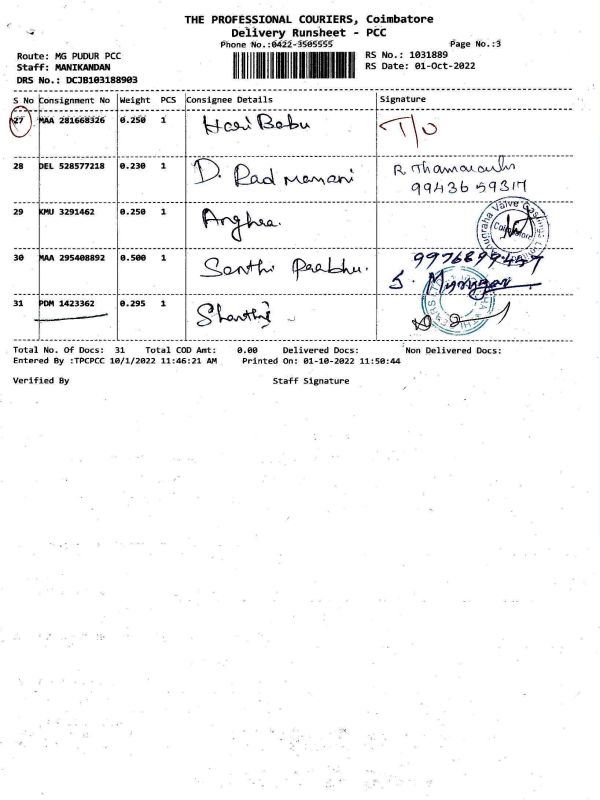 THE PROFESSIONAL COURIERS, Coimbatore
Delivery Runsheet - PCC
Phone No.:0422-3505555 Page No.:3
Route: MG PUDUR PCC RS No.: 1031889
Staff: MANIKANDAN RS Date: 01-Oct-2022
DRS No.: DCJB103188903
S No Consignment No Weight PCS Consignee Details Signature
27 MAA 281668326 0.250 1 Hari Babu T/O
28 DEL 528577218 0.230 1 D. Padmamani R. Thamarai
9943659317
29 KMU 3291462 0.250 1 Anghea. Valve Coimbatore
30 MAA 295408892 0.500 1 Santhi Prabhu. 9976899457
S. Murugan
31 PDM 1423362 0.295 1 Shanthi
Total No. Of Docs: 31 Total COD Amt: 0.00 Delivered Docs: Non Delivered Docs:
Entered By :TPCPCC 10/1/2022 11:46:21 AM Printed On: 01-10-2022 11:50:44
Verified By Staff Signature